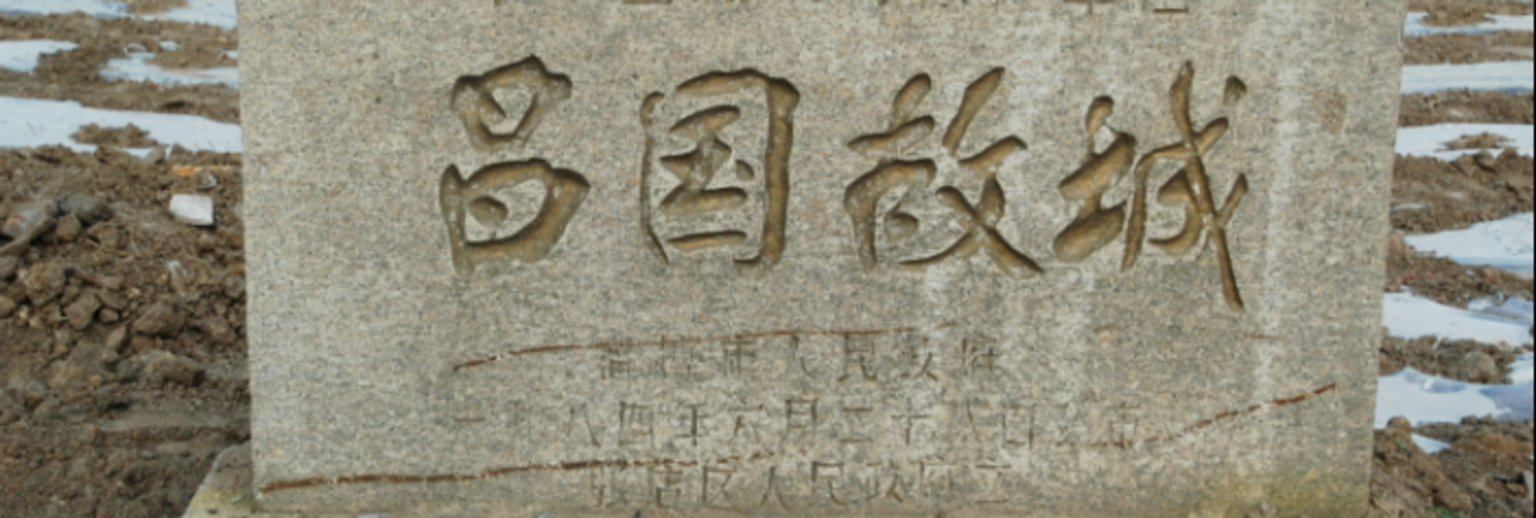 昌国故城
淄博市人民政府
一九八四年六月二十八日公布
张店区人民政府立